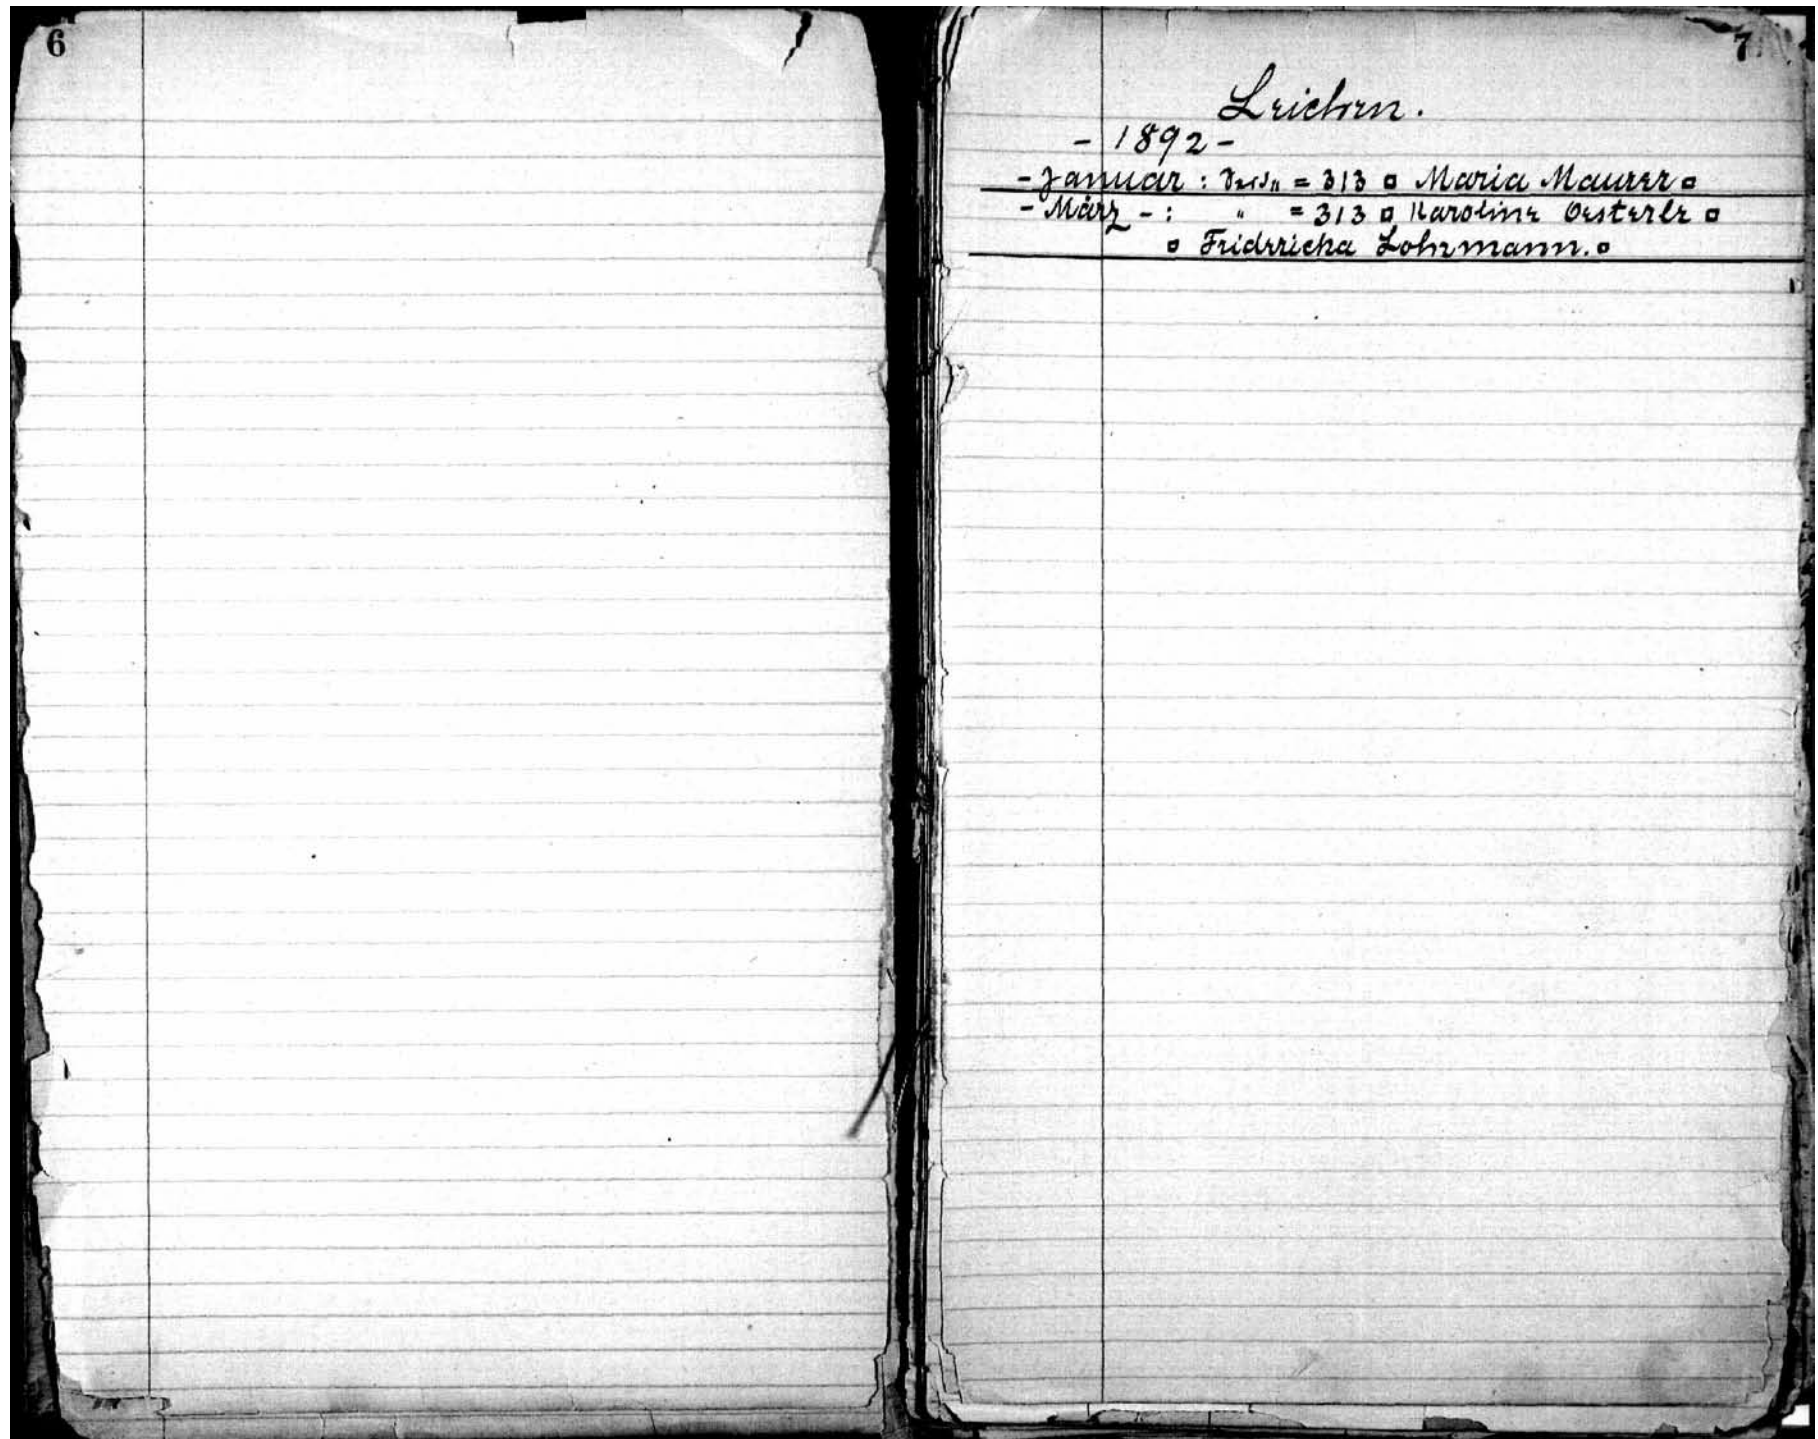 6
7
Leichen.
- 1892 -
- Januar : Seite = 313 ▫ Maria Maurer ▫
- März - : " = 313 ▫ Karoline Oesterle ▫
▫ Fridericka Lohrmann. ▫